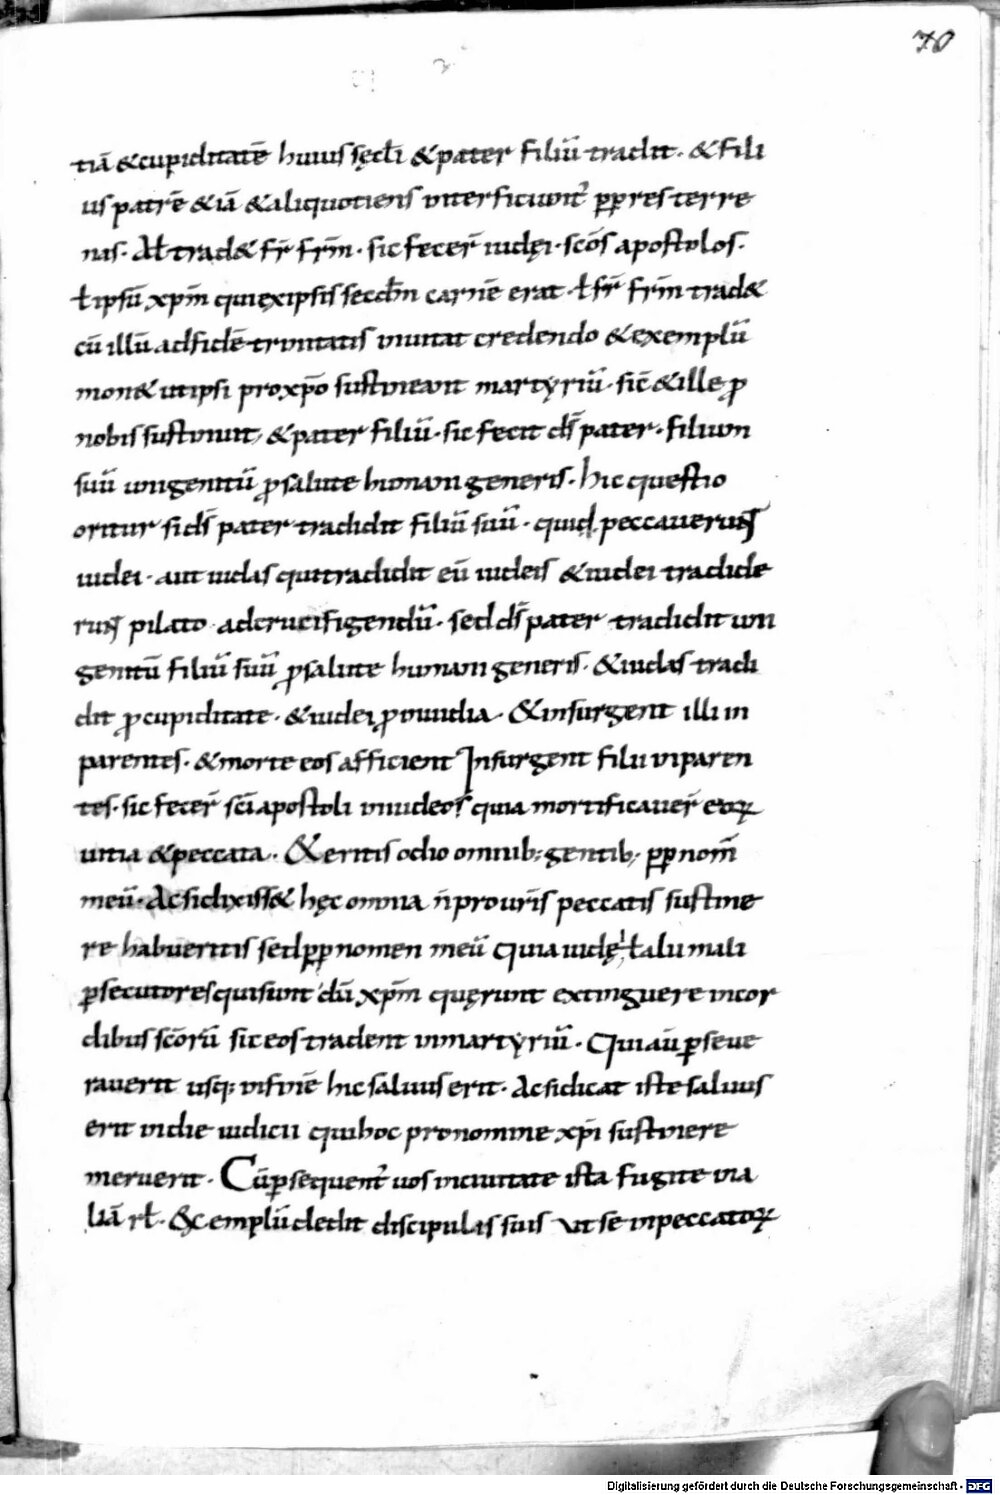 70
tiā & cupiditatē huius sęcłi & pater filiū tradit. & fili
us patrē & iā & aliquotiens interficiunt' ꝓp res terre
nas. Ał trad& fr̄ fr̄m. sic fecer̄ iudęi. sc̄os apostolos.
ł ipsū xp̄m qui ex ipsis secd̄m carnē erat. ł fr̄ fr̄m trad&
cū illū ad fidē trinitatis inuitat credendo & exemplū
mon& ut ipsi pro xp̄o sustineant martyriū. sic & ille ꝓ
nobis sustinuit, & pater filiū. sic fecit ds̄ pater. filium
suū unigenitū ꝓ salute humani generis. hic questio
oritur si ds̄ pater tradidit filiū suū. quid peccauerunt
iudei. aut iudas qui tradidit eū iudeis & iudei tradide
runt pilato ad crucifigendū. sed ds̄ pater tradidit uni
genitū filiū suū ꝓ salute humani generis. & iudas tradi
dit ꝓ cupiditate. & iudei ꝓ inuidia. & insurgent illi in
parentes. & morte eos afficient Insurgent filii in paren
tes. sic fecer̄ sc̄i apostoli in iudeos quia mortificauer̄ eoꝝ
uitia & peccata. & eritis odio omnib; gentib; ꝓp nom̄
meū. Ac si dixiss& hęc omnia n̄ pro uris̄ peccatis sustine
re habueritis sed ꝓp nomen meū Quia iudęi ł alii mali
ꝑsecutores qui sunt dū xp̄m quęrunt extinguere in cor
dibus sc̄orū sic eos tradent in martyriū. Qui aū ꝑseue
rauerit usq; in finē hic saluus erit. Ac si dicat iste saluus
erit in die iudicii qui hoc pro nomine xp̄i sustinere
meruerit. Cū ꝑsequent' uos in ciuitate ista fugite in a
liā rł. Exemplū dedit discipulis suis ut se in peccatoꝝ
Digitalisierung gefördert durch die Deutsche Forschungsgemeinschaft - DFG